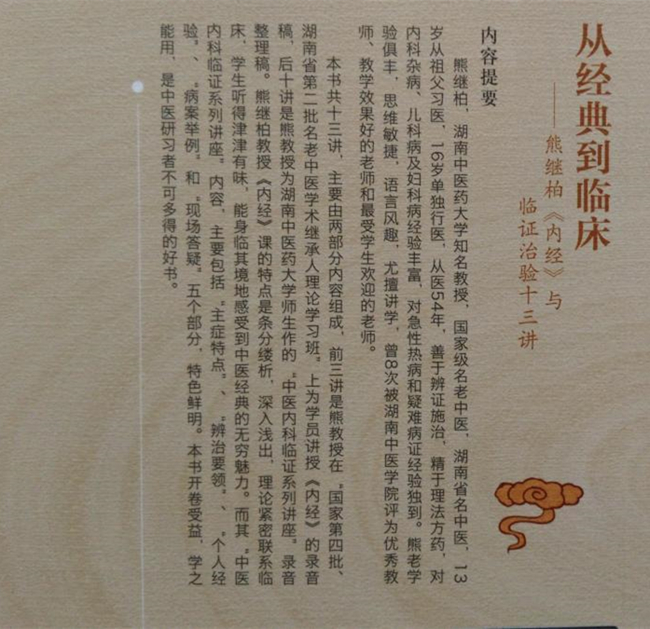 从经典到临床
——熊继柏《内经》与
临证治验十三讲
内容提要
熊继柏，湖南中医药大学知名教授，国家级名老中医，湖南省名中医，13
岁从祖父习医，16岁单独行医，从医54年，善于辨证施治，精于理法方药，对
内科杂病、儿科病及妇科病经验丰富，对急性热病和疑难病证经验独到。熊老学
验俱丰，思维敏捷，语言风趣，尤擅讲学，曾8次被湖南中医学院评为优秀教
师、教学效果好的老师和最受学生欢迎的老师。
本书共十三讲，主要由两部分内容组成，前三讲是熊教授在“国家第四批、
湖南省第二批名老中医学术继承人理论学习班”上为学员讲授《内经》的录音
稿，后十讲是熊教授为湖南中医药大学师生作的“中医内科临证系列讲座”录音
整理稿。熊继柏教授《内经》课的特点是条分缕析，深入浅出，理论紧密联系临
床，学生听得津津有味，能身临其境地感受到中医经典的无穷魅力。而其“中医
内科临证系列讲座”内容，主要包括“主症特点”、“辨治要领”、“个人经
验”、“病案举例”和“现场答疑”五个部分，特色鲜明。本书开卷受益，学之
能用，是中医研习者不可多得的好书。